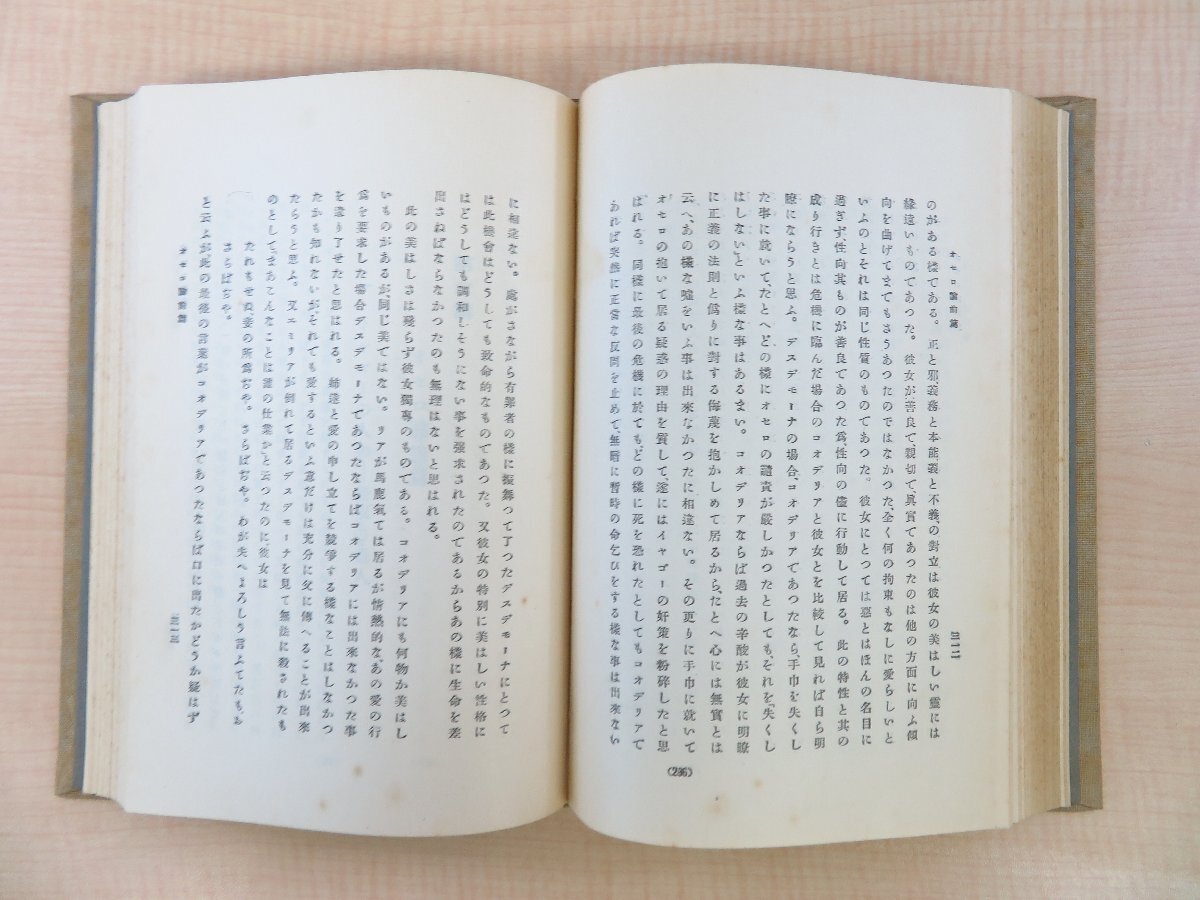 オセロ論前篇
三一二
のがある樣である。正と邪、義務と本能、義と不義の對立は彼女の美はしい靈には
緣遠いものであつた。彼女が、善良で、親切で、眞實であつたのは他の方面に向ふ傾
向を曲げてまでもさうあつたのではなかつた、全く何の拘束もなしに愛らしいと
いふのとそれは同じ性質のものであつた。彼女にとつては惡とはほんの名目に
過ぎず、性向其ものが善良であつた爲、性向の儘に行動して居る。此の特性と其の
成り行きとは危機に臨んだ場合のコオデリアと彼女とを比較して見れば自ら明
瞭にならうと思ふ。デスデモーナの場合、コオデリアであつたなら、手巾を失くし
た事に就いて、たとへどの樣にオセロの譴責が嚴しかつたとしても、それを「失くし
はしない」といふ樣な事はあるまい。コオデリアならば過去の辛酸が彼女に明瞭
に正義の法則と僞りに對する侮蔑を抱かしめて居るから、たとへ心には無實とは
云へ、あの樣な噓をいふ事は出來なかつたに相違ない。その更りに手巾に就いて
オセロの抱いて居る疑惑の理由を質して、遂にはイャゴーの奸策を粉碎したと思
はれる。同樣に最後の危機に於ても、どの樣に死を恐れたとしてもコオデリアで
あれば突然に正當な反問を止めて、無暗に暫時の命乞ひをする樣な事は出來ない
(296)
に相違ない。處がさながら有罪者の樣に振舞って了つたデスデモーナにとつて
は此機會はどうしても致命的なものであつた。又彼女の特別に美はしい性格に
はどうしても調和しそうにない事を强求されたのであるからあの樣に生命を差
出さねばならなかつたのも無理はないと思はれる。
此の美はしさは殘らず彼女獨專のものである。コオデリアにも何物か美はし
いものがあるが、同じ美ではない。リアが馬鹿氣ては居るが情熱的な、あの愛の行
爲を要求した場合デスデモーナであつたならばコオデリアには出來なかつた事
を遣り了せたと思はれる。姉達と愛の申し立てを競爭する樣なことはしなかつ
たかも知れないが、それでも愛するといふ意だけは充分に父に傳へることが出來
たらうと思ふ。又エミリアが倒れて居るデスデモーナを見て無法に殺されたも
のとして、「まあこんなことは誰の仕業か」と云つたのに、彼女は
たれもせぬ、妾の所爲ぢや。さらばぢや。わが夫へよろしう言ふてたも、お
さらばぢや。
と云よが、此の最後の言葉がコオデリアであつたならば口に出たかどうか疑はず
オセロ論前篇
三一三